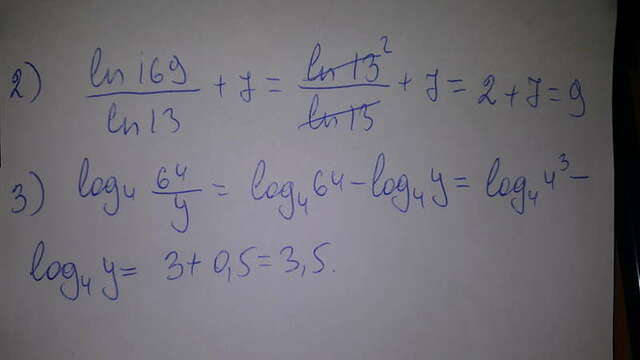 2) ln 169 / ln 13 + 7 = ln 13² / ln 13 + 7 = 2 + 7 = 9
3) log₄ 64/y = log₄ 64 - log₄ y = log₄ 4³ -
log₄ y = 3 + 0,5 = 3,5.